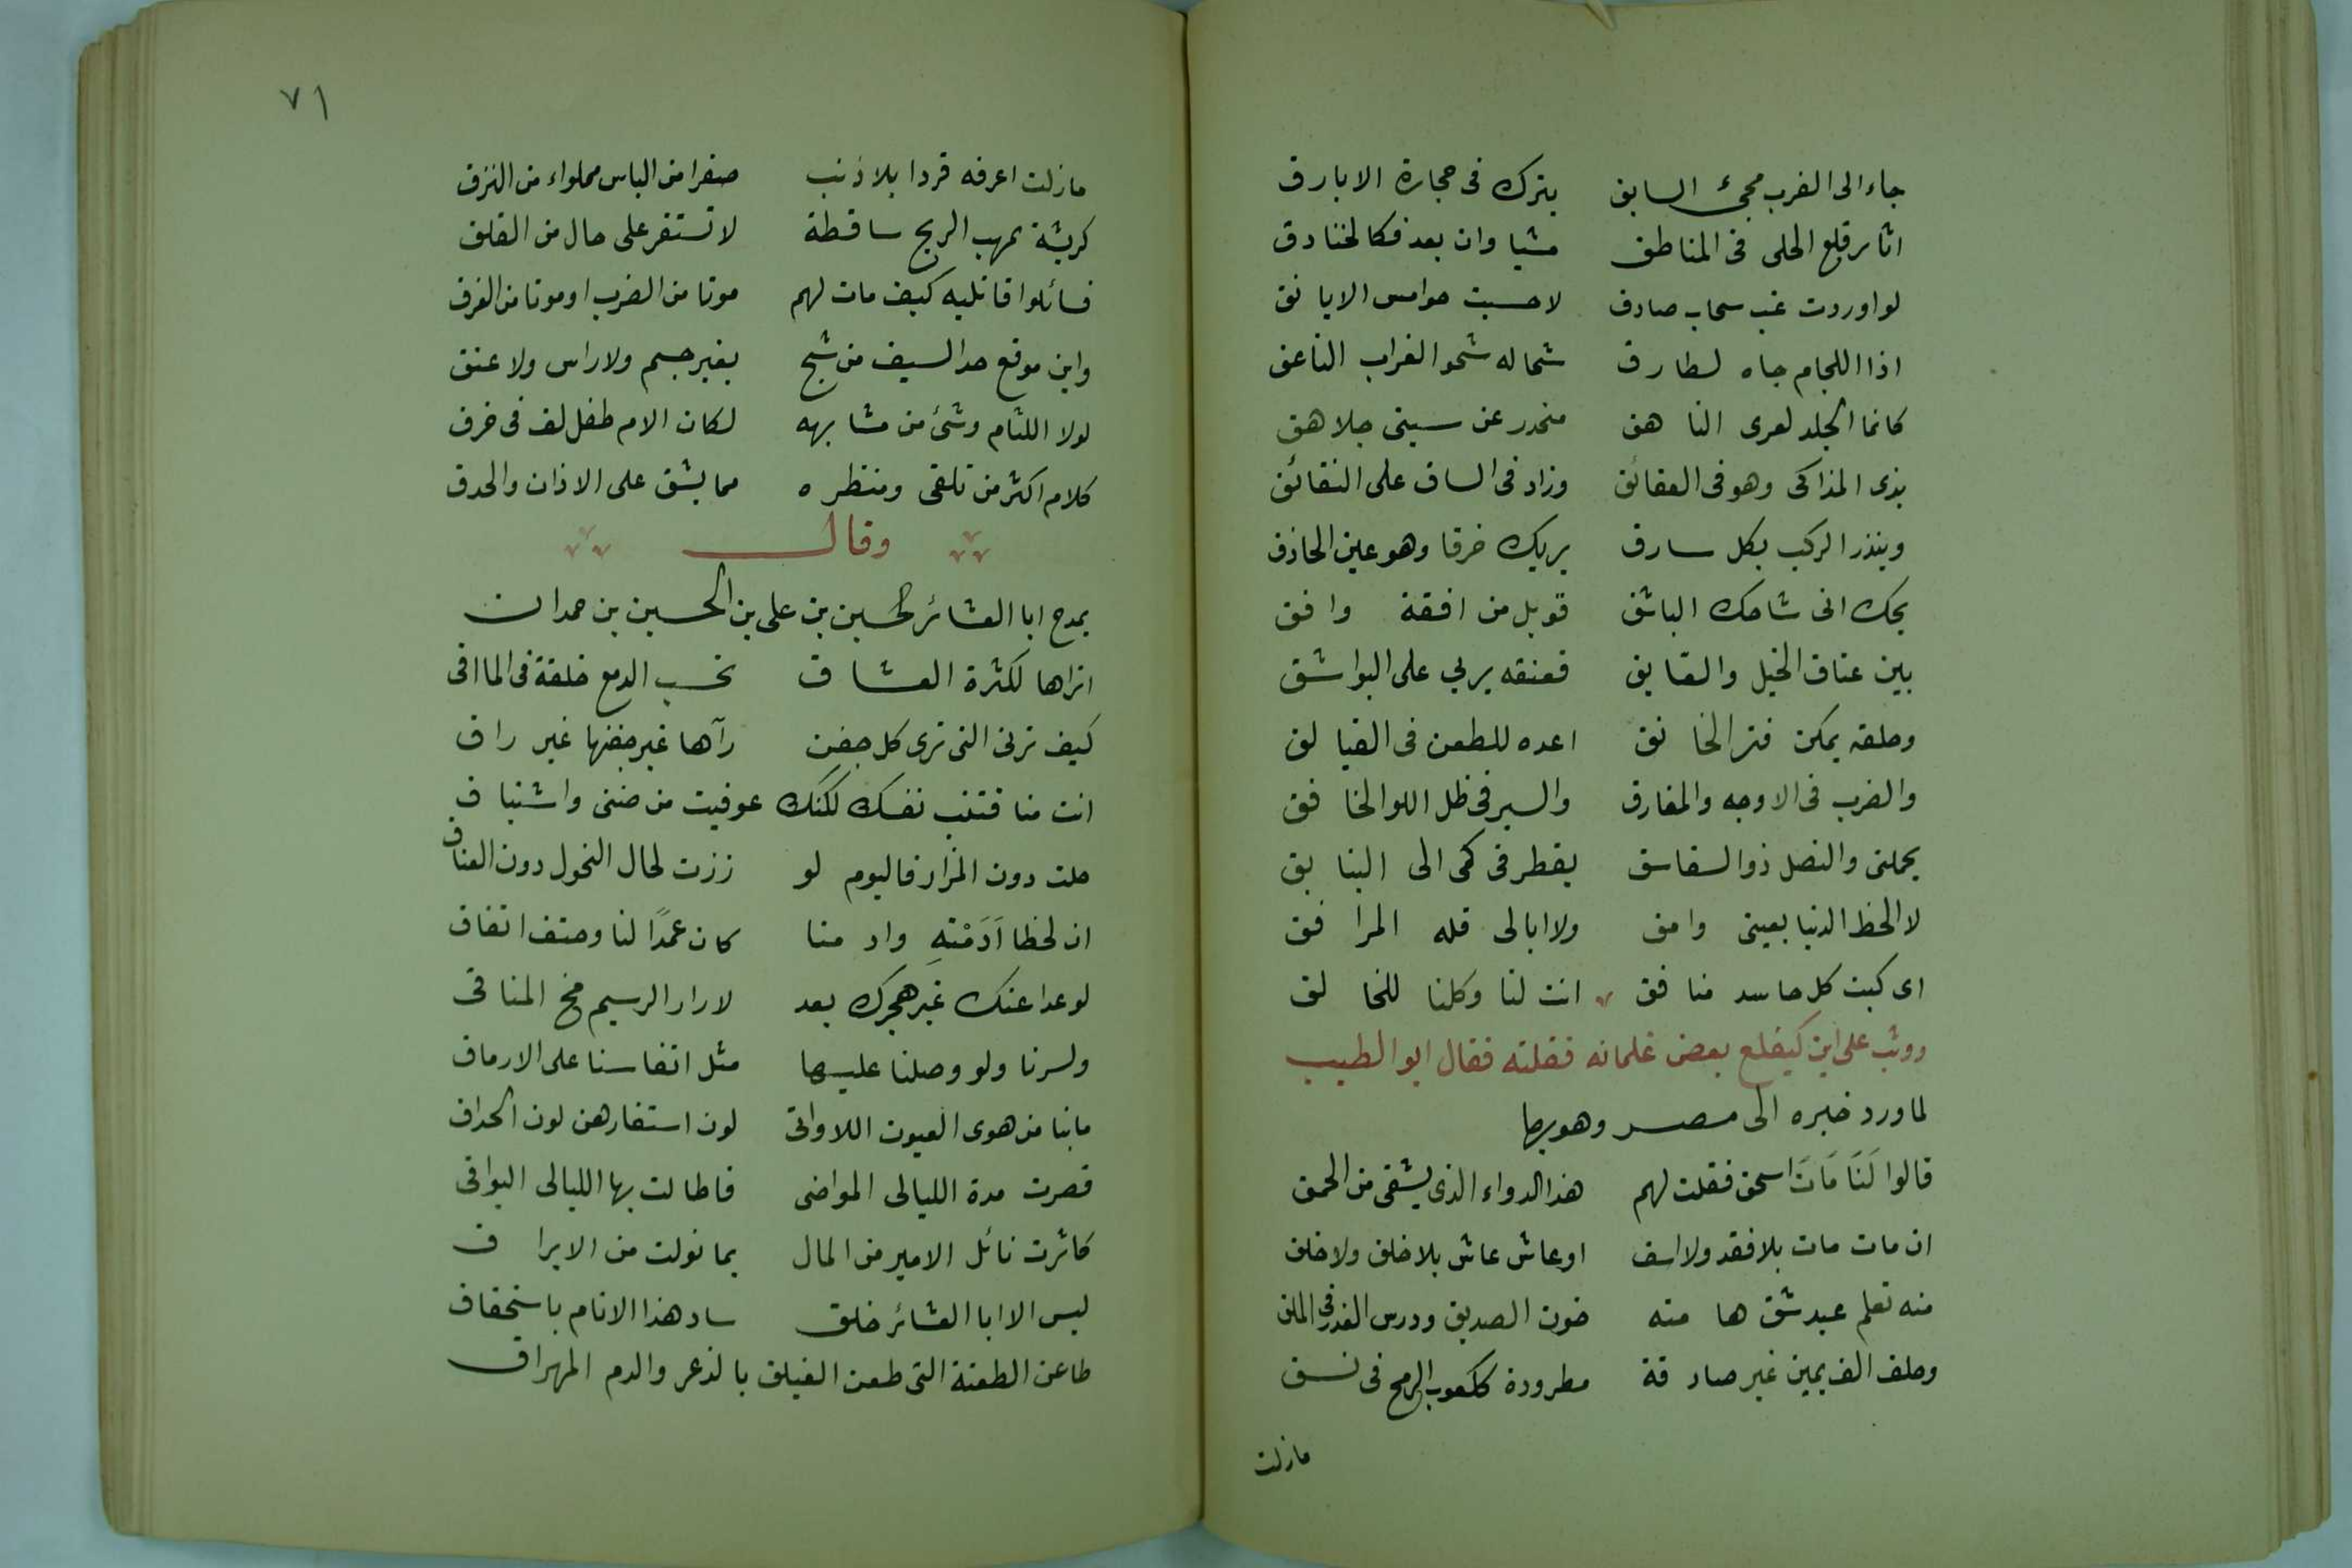 جاء الى الغرب مجئ السابق يترك فى حجارة الابارق
اثار قلع الحلى فى المناطق مشيا وان يعد فكالخنادق
لو اوردت غب سحاب صادق لاحسبت خوامس الايانق
اذا اللجام جاه لطارق شحا له شحو الغراب الناعق
كانما الجلد لعرى الناهق منحدر عن سيتى جلاهق
بذى المذاكى وهو فى العقائق وزاد فى الساق على النقائق
وينذر الركب بكل سارق يريك خرقا وهو عين الحاذق
يحك انى شا حك الباشق قوبل من افقة وافق
بين عتاق الخيل والعتايق فعنقه يربي على البواشق
وحلقه يمكن فتر الخانق اعده للطعن فى الفيالق
والضرب فى الاوجه والمفارق والسير فى ظل اللوا الخافق
يحملنى والنصل ذو السفاسق يقطر فى كمى الى البنايق
لا الحظ الدنيا بعينى وامق ولا ابالى قله المرافق
اى كبت كل حاسد منافق انت لنا وكلنا للخالق
ووثب على ابن كيغلغ بعض غلمانه فقلته فقال ابو الطيب
لما ورد خبره الى مصر وهو بها
قالوا لَنَا مَاتَ اسحق فقلت لهم هذا الدواء الذى يشفى من الحمق
ان مات مات بلا فقد ولا اسف او عاش عاش بلا خلق ولا خلق
منه تعلم عبد شق هامته خون الصديق ودرس الغدر فى الملق
وحلف الف يمين غير صادقة مطرودة ككعوب الرمح فى نسق
مازلت
٧١
مازلت اعرفه قردا بلا ذنب صفرا من الباس مملواء من النزق
كريشة بمهب الريح ساقطة لا تستقر على حال من القلق
فسائلوا قاتليه كيف مات لهم موتا من الضرب او موتا من الفرق
واين موقع حد السيف من شبح بغير جسم ولا راس ولا عنق
لولا اللئام وشئ من مشابهه لكان الام طفل لف فى خرق
كلام اكثر من تلقى ومنظره مما يشق على الاذان والحدق
وقال
يمدح ابا العشائر الحسين بن على بن الحسين بن حمدان
اتراها لكثرة العشاق تحسب الدمع خلقة فى الماقى
كيف ترثى التى ترى كل جفن رآها غير جفنها غير راق
انت منا فتنت نفسك لكنك عوفيت من ضنى واشتياق
حلت دون المزار فاليوم لو زرت لحال النحول دون العناق
ان لحظا اَدَمْتهِ وادمنا كان عمدًا لنا وحتف اتفاق
لو عدا عنك غير هجرك بعد لارار الرسيم مخ المناقى
ولسرنا ولو وصلنا عليها مثل انفاسنا على الارماق
مابنا من هوى العيون اللاواتى لون اسفارهن لون الحداق
قصرت مدة الليالى المواضى فاطالت بها الليالى البواقى
كاثرت نائل الامير من المال بما نولت من الايراق
ليس الا ابا العشائر خلق ساد هذا الانام باستحقاق
طاعن الطعنة التى طعن الفيلق بالذعر والدم المهراق